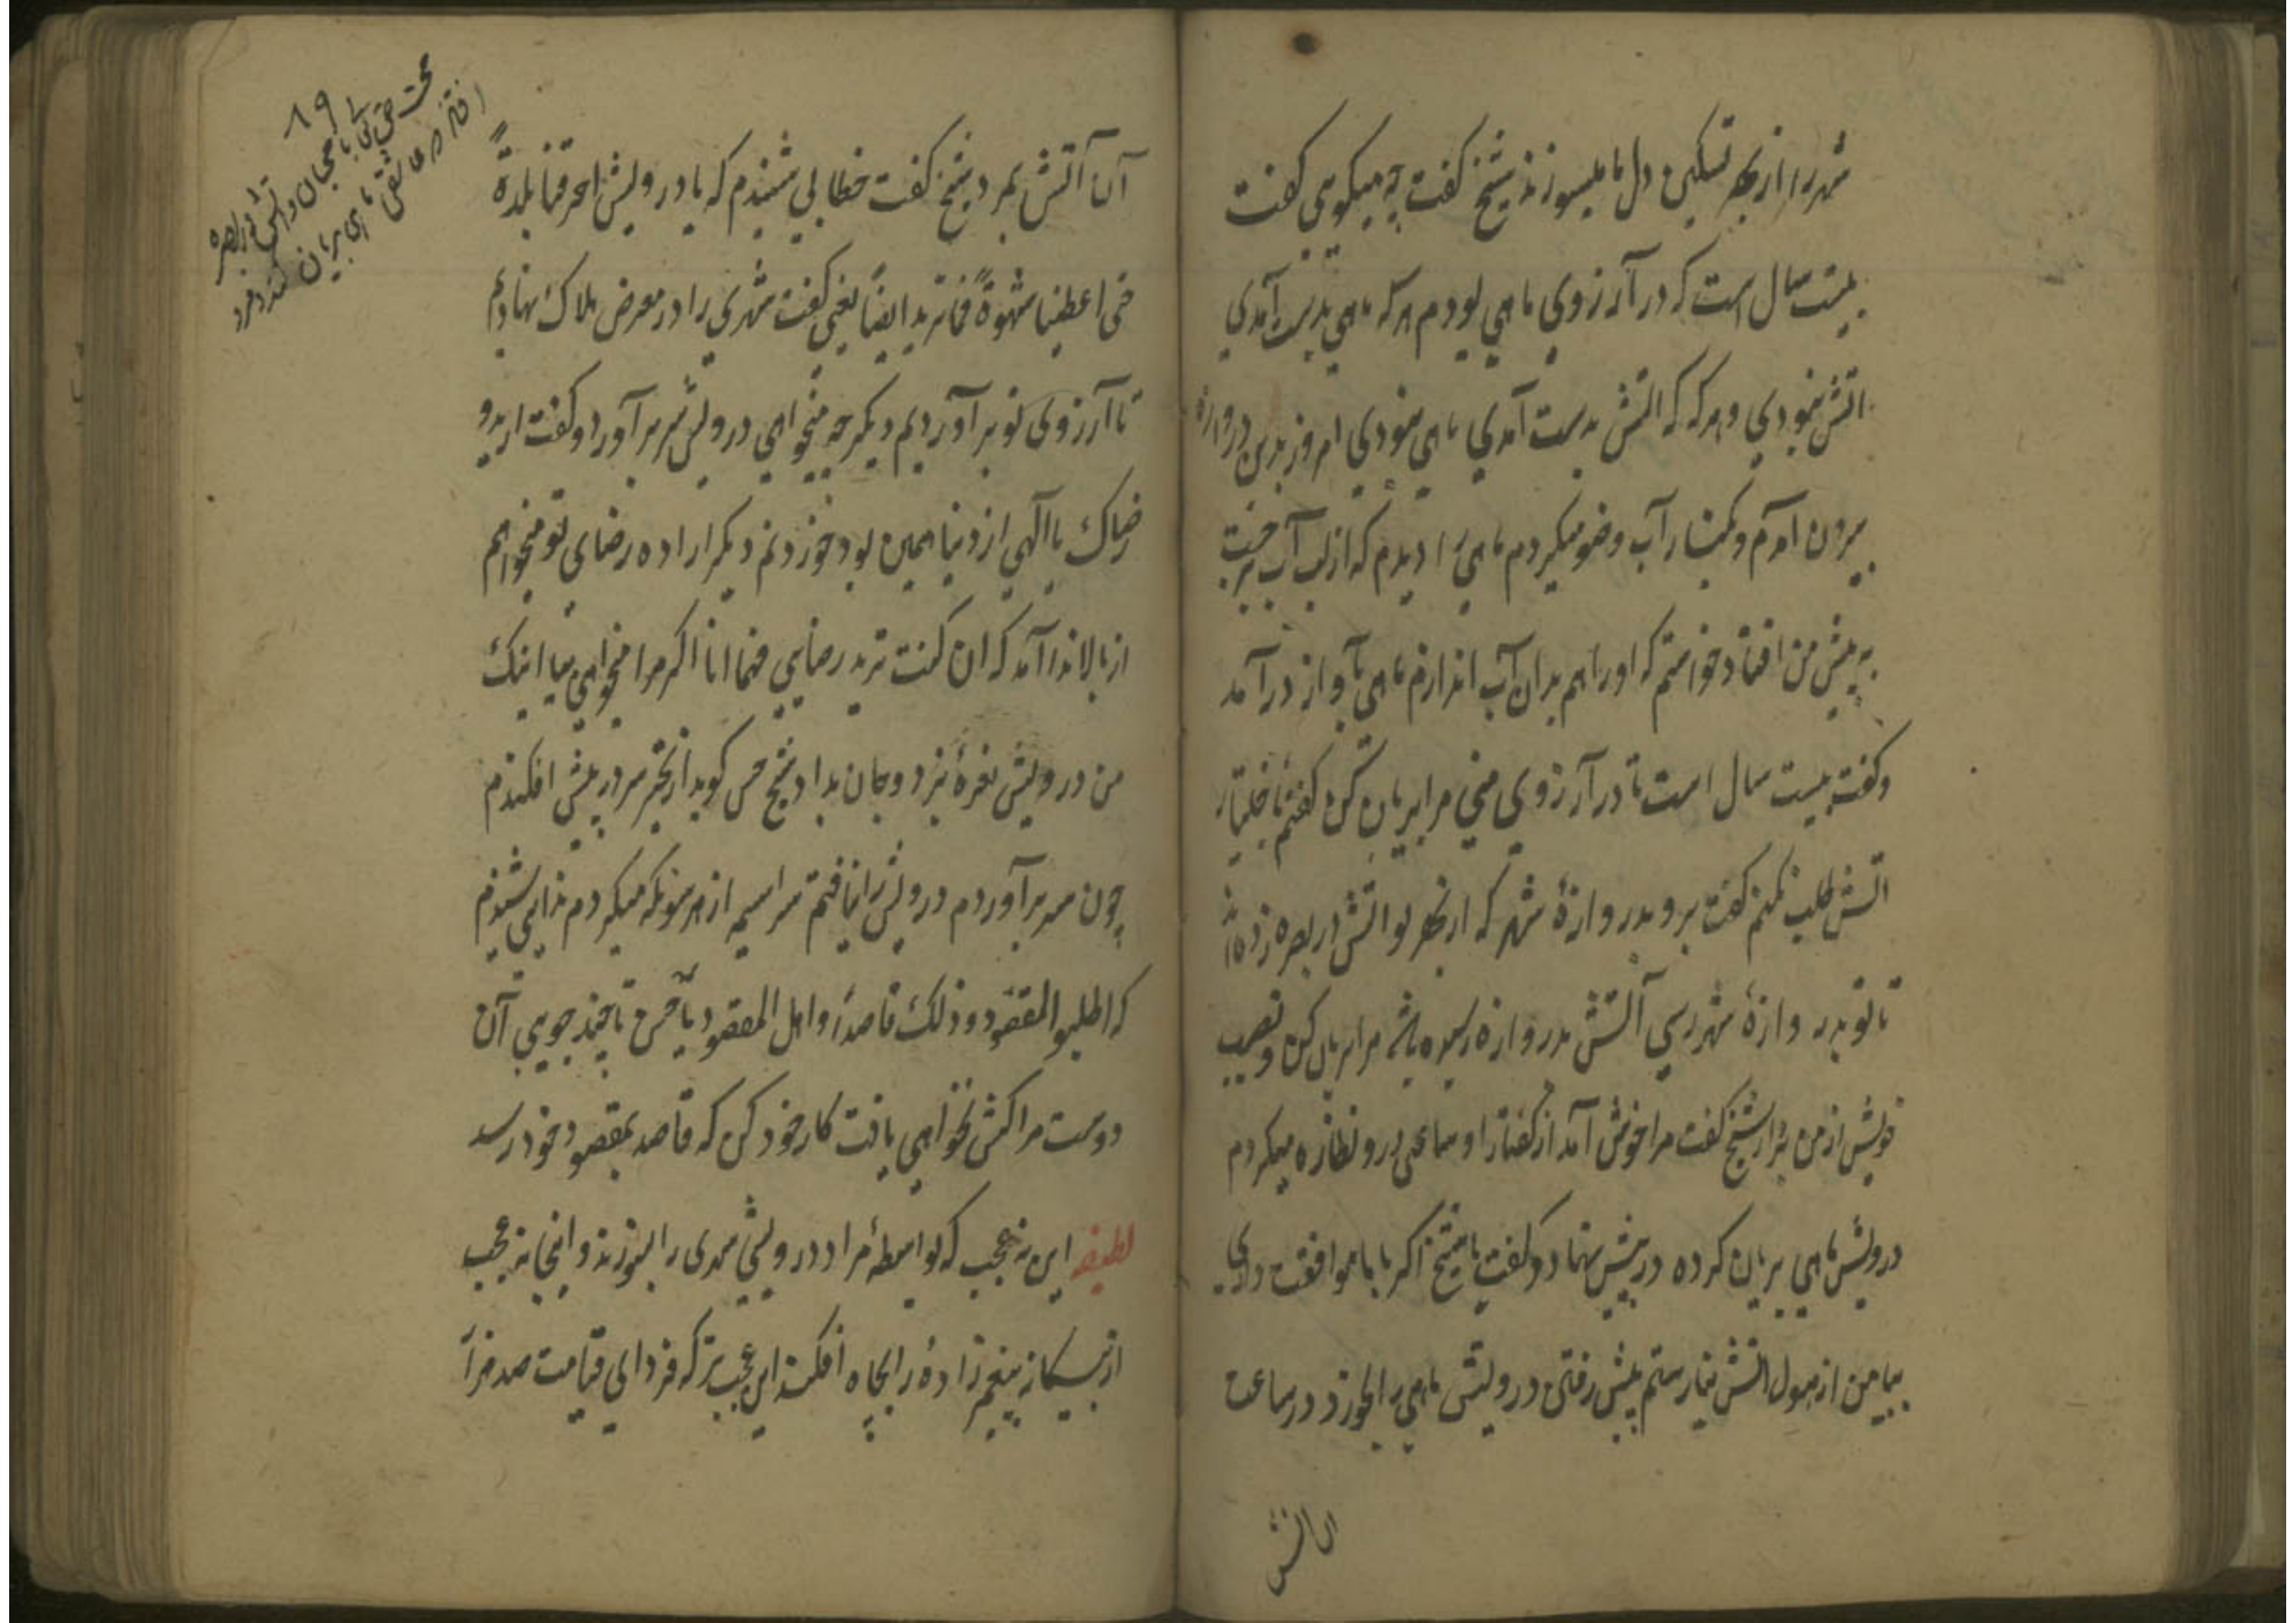 شهر را از بهر تسکین دل ما میسوزند شیخ گفت چه میگویی گفت
بیست سال است که در آرزوی ماهی بودم هر که ماهی بدست آمدی
اتش نبودی و هر که که اتش بدست آمدی ماهی نبودی امروز بدین دروازه
بیرون آمدم و بکنار آب وضو میکردم ماهی را دیدم که از لب آب برجست
به پیش من افتاد خواستم که او را هم بدان آب اندازم ماهی بآواز در آمد
و گفت بیست سال است تا در آرزوی منی مرا بریان کن گفتم تا خلیتار
اتش طلب نکنم گفت برو بدروازهٔ شهر که از بهر تو اتش در بصره زده‌اند
تا تو بدروازهٔ شهر رسی آتش بدروازه رسیده باشد مرا بریان کن و نصیب
خویش از من بردار شیخ گفت مرا خوش آمد از گفتار او ساعتی درو نظاره میکردم
درویش ماهی بریان کرده در پیش نهاد و گفت یا شیخ اگر با ما موافقت داری
بیا من از هول اتش نیارستم پیش رفتن درویش ماهی را بخورد و در ساعت
ان اتش
آن آتش بمرد شیخ گفت خطابی شنیدم که یا درویش احرقنا بلدةً
حتی اعطینا شهوةً فما ترید ایضاً یعنی گفت شهری را در معرض هلاک نهادیم
تا آرزوی تو بر آوردیم دیگر چه میخواهی درویش سر بر آورد و گفت ارید
رضاک یا الهی از دنیا همین بود خوردنم دیگر اراده رضای تو میخواهم
از بالا ندا آمد که ان کنت ترید رضایی فها انا اگر مرا میخواهی بیا اینک
من درویش نعرهٔ بزد و جان بداد شیخ حسن گوید از تحیر سر در پیش افکندم
چون سر بر آوردم درویش را نیافتم سراسیمه از هر سو نگه میکردم ندایی شنیدم
که اطلبوا المقصود و ذلک قاصداً واصل المقصود یا حسن تا چند جویی آن
دوست مراکش نخواهی یافت کار خود کن که قاصد بمقصود خود رسد
لطیفه این نه عجب که بواسطهٔ مراد درویشی شهری را بسوزند و اینجا نه عجب
از بیگانه پیغمبرزادهٔ را بچاه افکند این عجب‌تر که فردای قیامت صد هزار
۸۹
محبت حق تعالی با محبان و اتش در بصره
افتادن و عاشق ماهی بریان